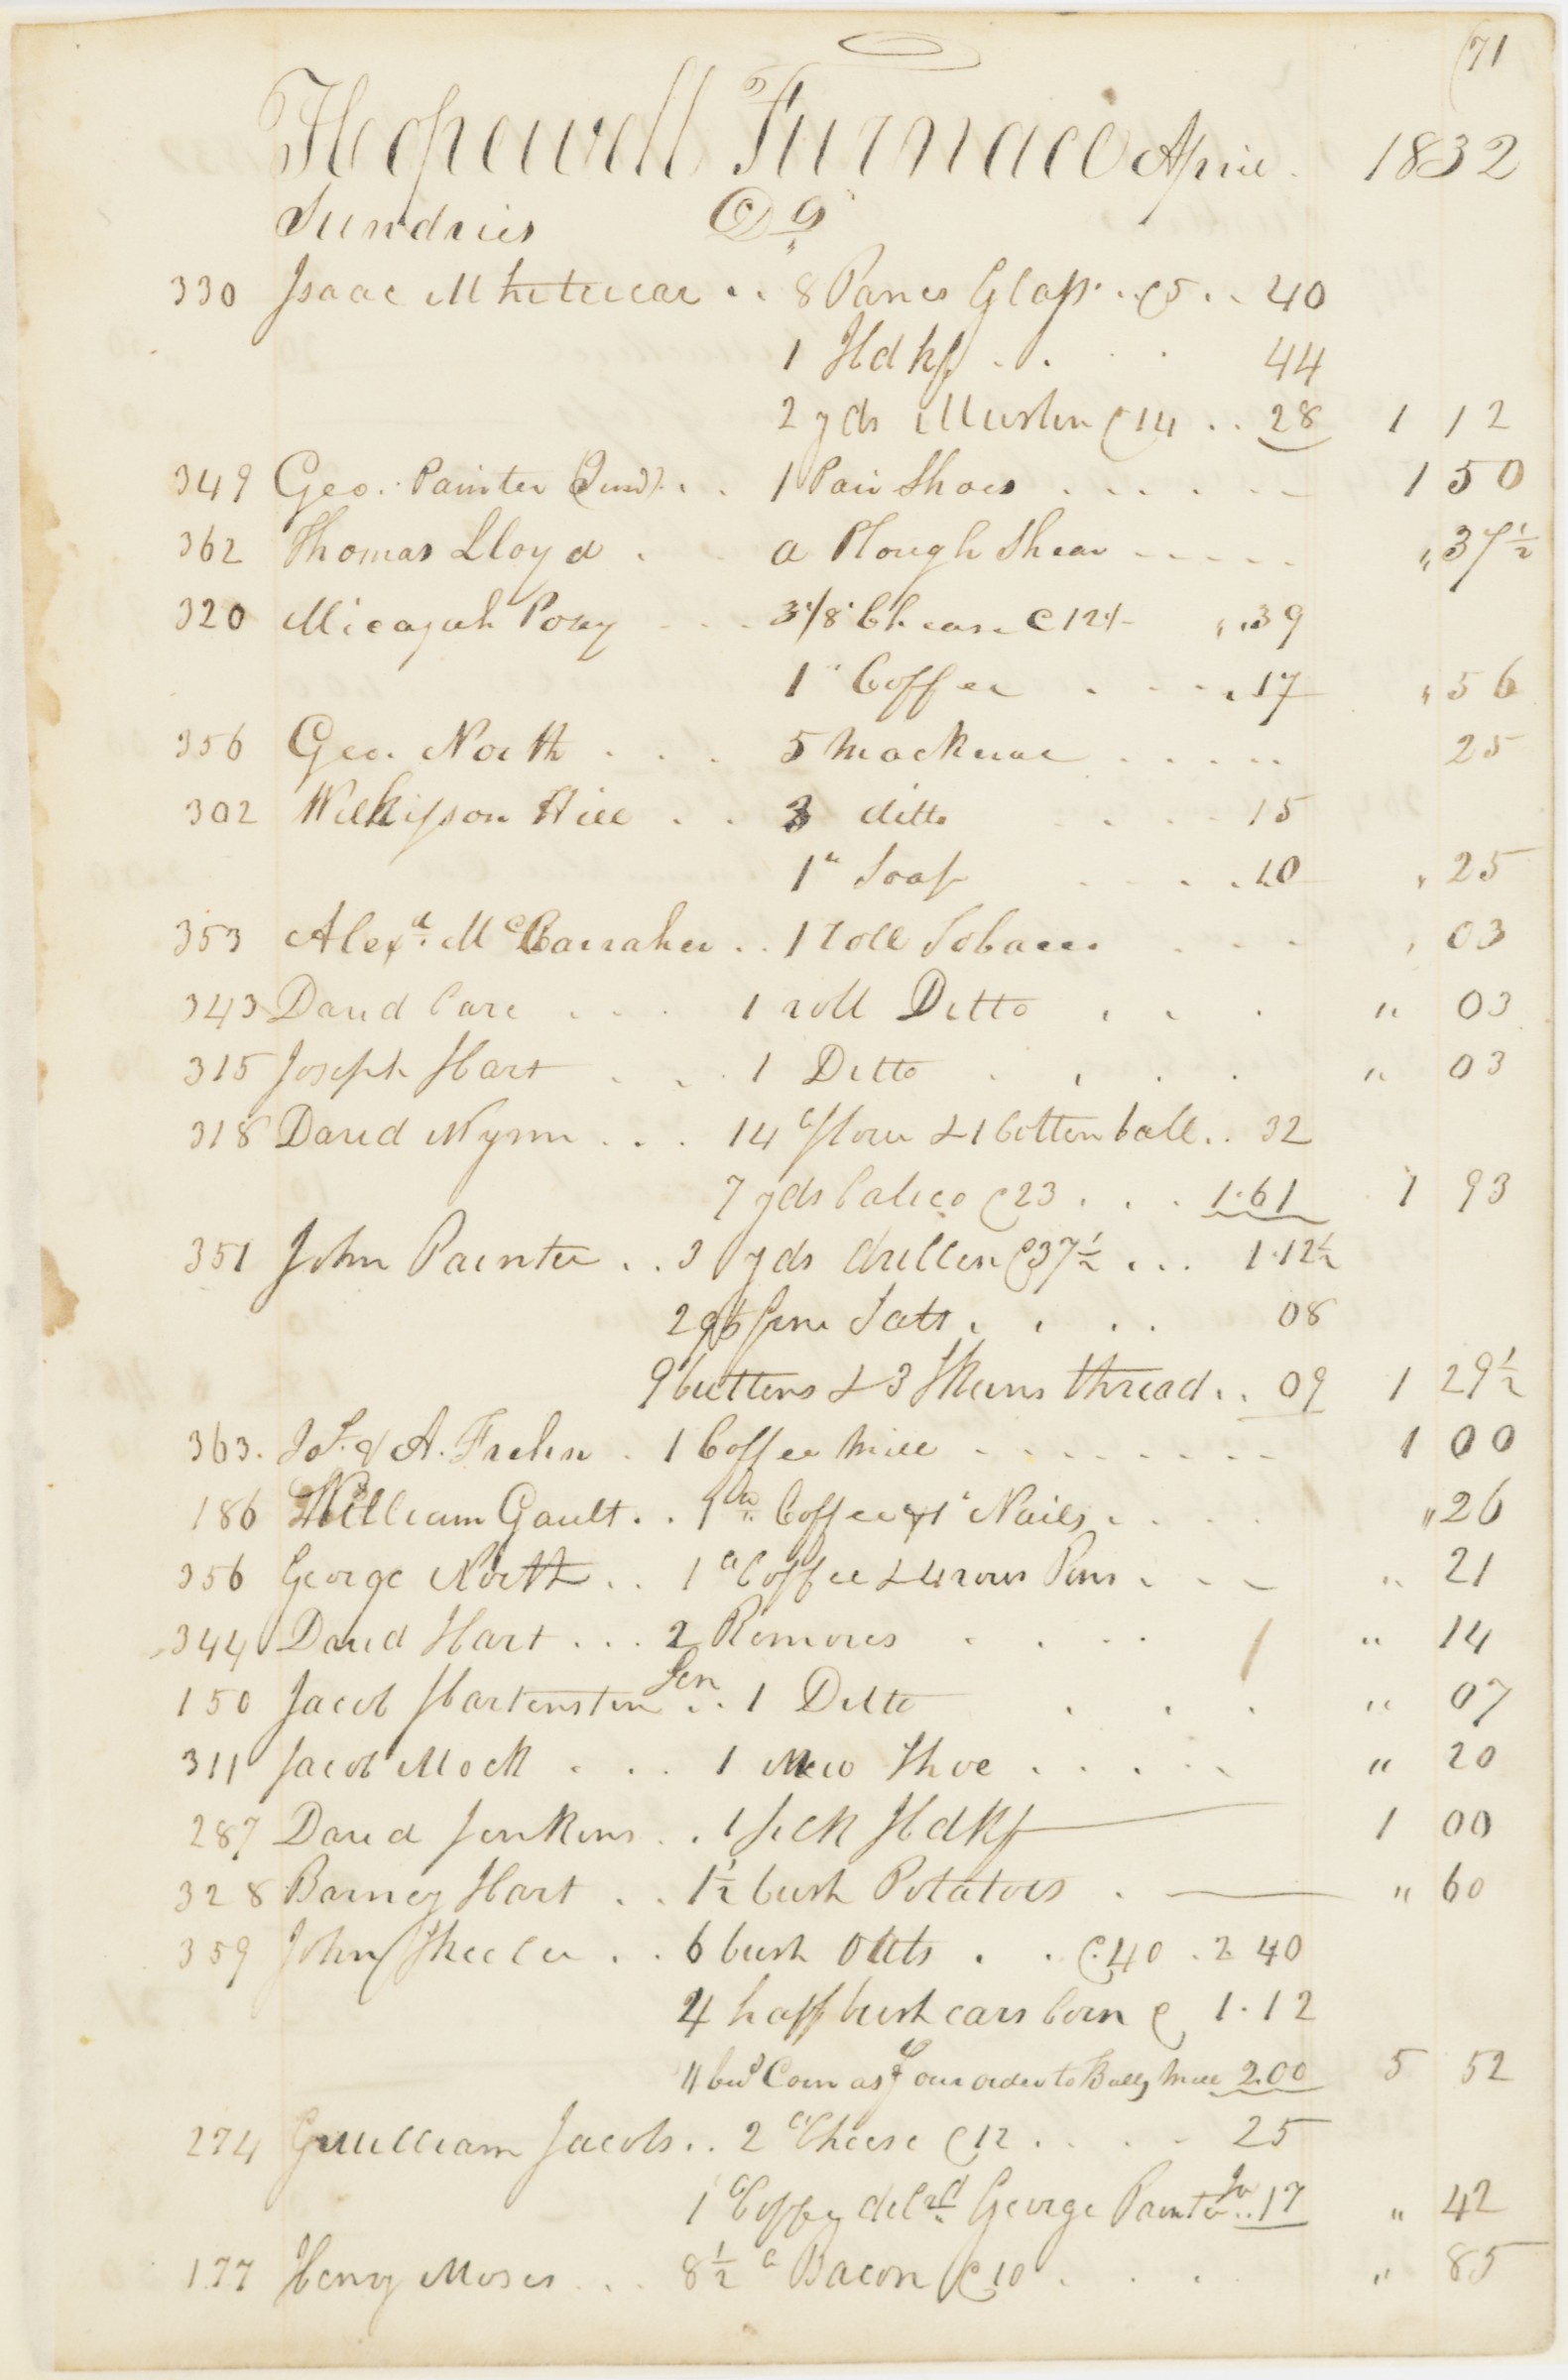 (71
Hopewell Furnace April 1832
Sundries Dr
330 Isaac Whitecar .. 8 Panes Glass .. @5 .. 40
1 Hdkf . . . 44
2 yds Muslin @14 .. 28 1 12
349 Geo. Painter . . 1 Pair Shoes . . . . . 1 50
362 Thomas Lloyd . a Plough Shear - - - - " 37½
320 Micajah Posey . . . 3⅛ " Cheese @12½ " 39
1 " Coffee . . . . 17 " 56
356 Geo. North . . . 5 Mackerac . . . . . 25
302 Wilkisson Hill . . 3 ditto . . . 15
1 " Soap . . . 10 " 25
353 Alexd. McCarraher . . 1 roll Tobacco . . . " 03
343 David Care . . . 1 roll Ditto . . . " 03
315 Joseph Hart . . . 1 Ditto . . . . " 03
318 David Wynn . . . 14 " flour & 1 Cotton ball .. 32
7 yds Calico @23 . . . 1.61 1 93
351 John Painter . . 3 yds drillen @37½ . . . 1.12½
2 Tats . . . . 08
9 buttons & 3 Skeins thread . . 09 1 29½
363. Js. & A. Frehn . 1 Coffee Mill - - - - - - 1 00
186 William Gault . . 1 " Coffee & 1 " Nails . . . " 26
356 George North . . 1 " Coffee & 4 rows Pins . . . " 21
344 David Hart . . . 2 Romovers . . . . " 14
150 Jacob Hartenstin Sen . . 1 Ditto . . . " 07
311 Jacob Mock . . . 1 New Shoe . . . . " 20
287 David Jenkins . . 1 Silk Hdkf 1 00
328 Barney Hart . . 1½ bush Potatoes . " 60
359 John Sheeler . . 6 bush Oats . . @40 . 2 40
4 half bush ears Corn @ 1.12
4 bus Corn as ⅌ our order to Bally Mill 2.00 5 52
274 Guilliam Jacobs . . 2 " Cheese @12 . . . . 25
1 " Coffy deld George Painter Jr . . 17 " 42
177 Henry Moses . . . 8½ " Bacon @10 . . . " 85